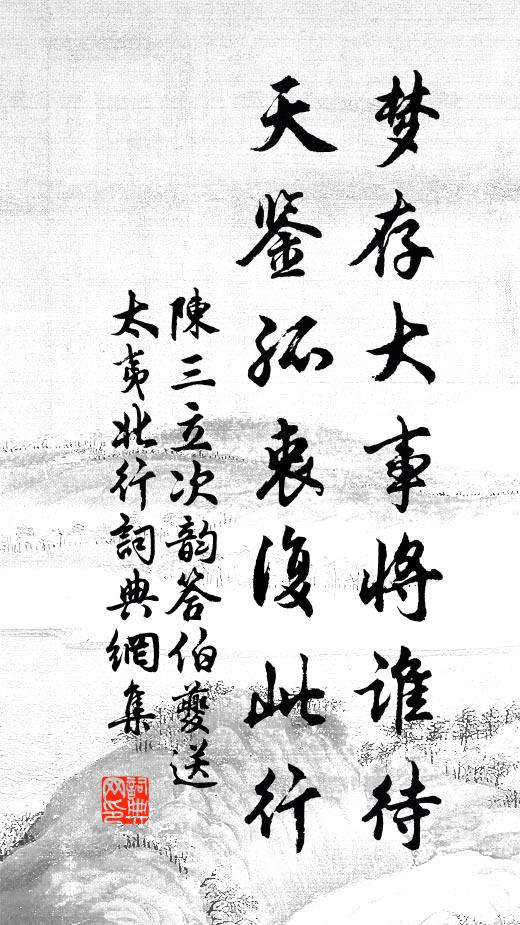 梦存大事将谁待
天鉴孤衷復此行
陳三立次韵答伯夔送
太夷北行詞典網集
詞典
网印